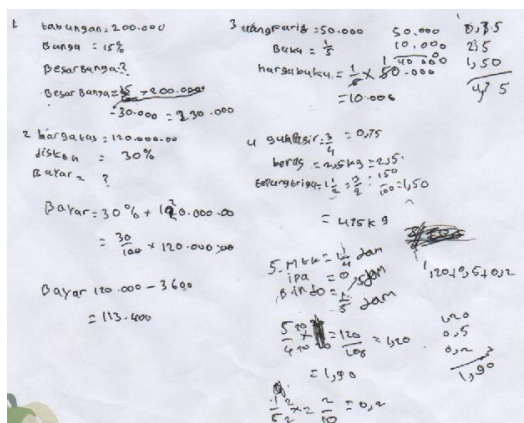 1 tabungan = 200.000
Bunga = 15%
Besar bunga ?
Besar Bunga = × 200.000
- 30.000 = 230.000
2 harga tas = 120.000.00
diskon = 30%
Bayar = ?
Bayar = 30% + 120.000.00
= 30/100 × 120.000.00
Bayar 120.000 - 3600
= 113.400
3 uang faris = 50.000
Buku = 1/5
harga buku = 1/5 × 50.000
= 10.000
50.000
10.000
40.000
0,75
2,5
1,50
4,75
4 gula pasir = 3/4 = 0,75
beras = 2,5 kg = 2,5
tepung trigu = 1 1/2 = 3/2 = 150/100 = 1,50
= 4,75 kg
5. MTK = 1 1/4 Jam
ipa = 0,5 jam
B. indo = 1/5 Jam
1,20 + 0,5 + 0,2
5/4 × = 120/100 = 1,20
= 1,90
1,20
0,5
0,2
1,90
1/5 × 2/2 = 2/10 = 0,2